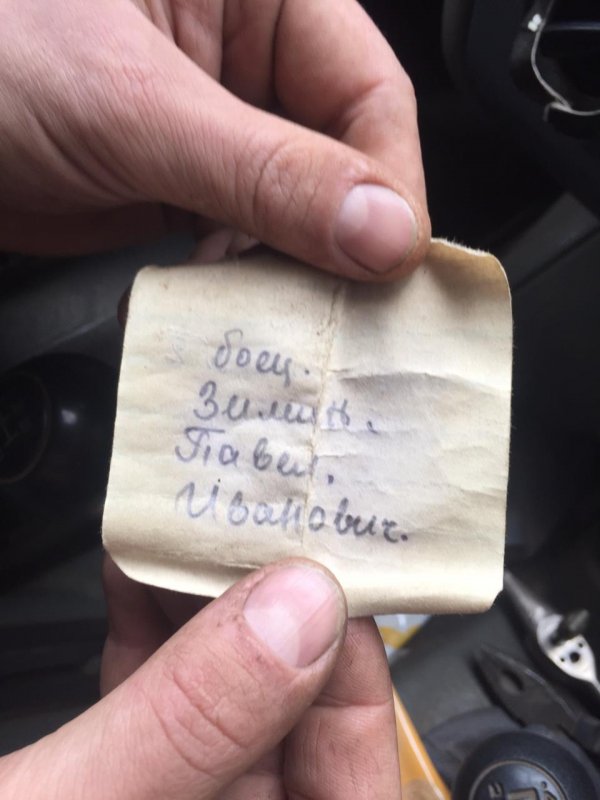 боец.
Зимин.
Павел.
Иванович.